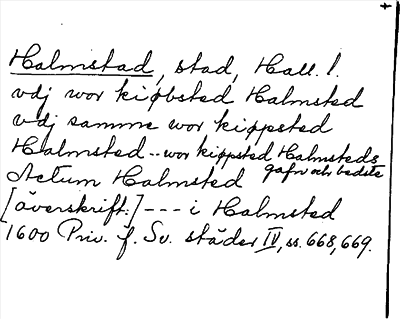 Halmstad, stad, Hall. l.
vdj wor kiøbsted Halmsted
vdj samme wor kiøpsted
Halmsted -- wor kiøpsted Halmsteds
gafn och bedste
Actum Halmsted
[överskrift.] --- i Halmsted
1600 Priv. f. Sv. städer IV, ss. 668, 669.